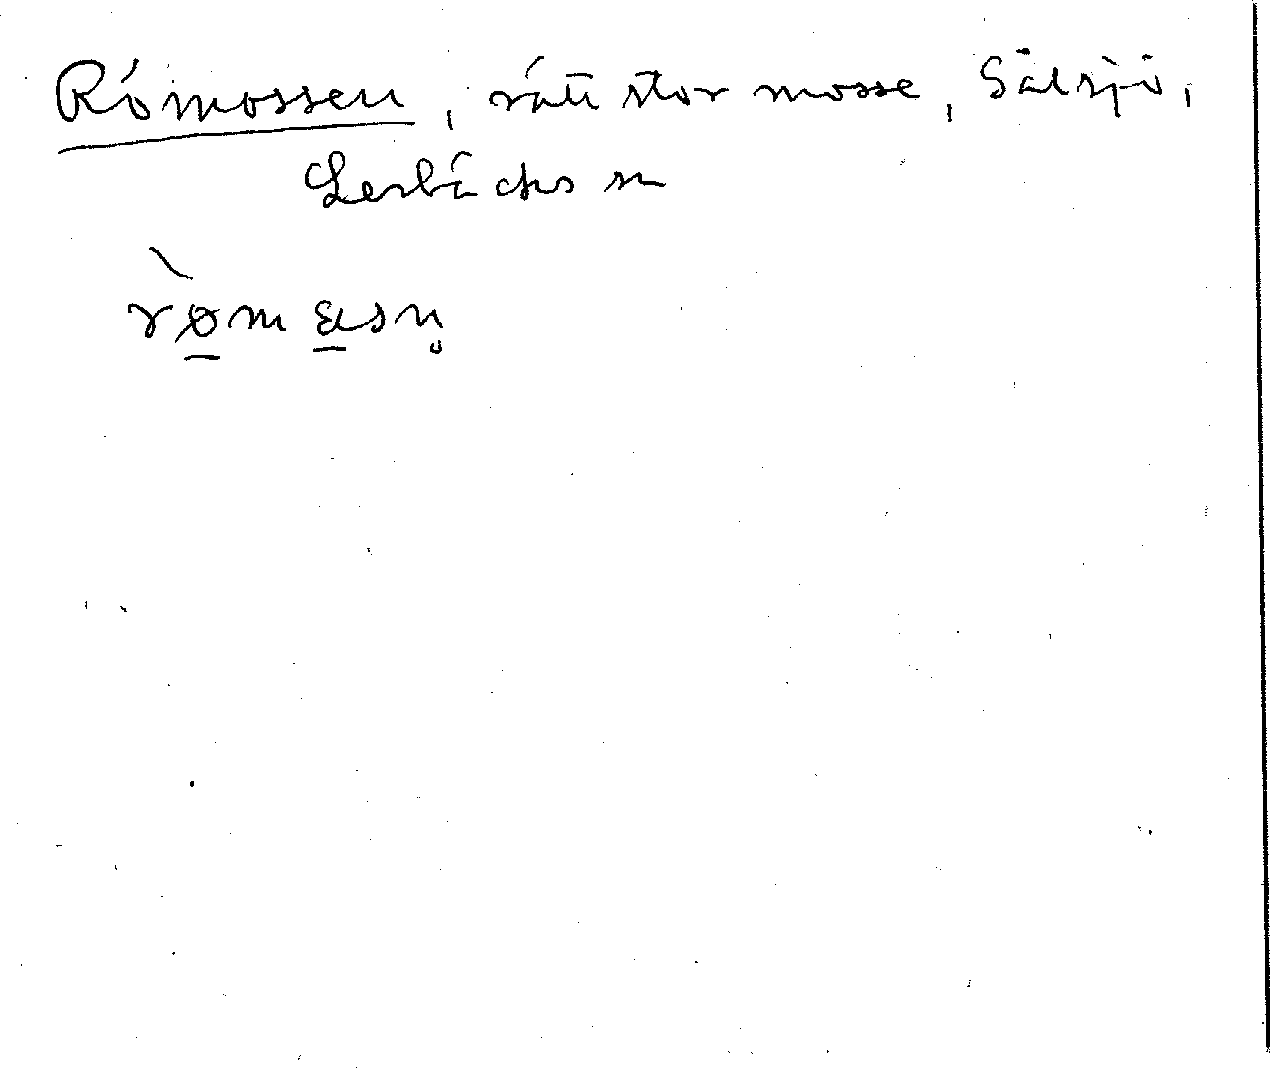 Rómossen, rätt stor mosse, Sälsjö,
Lerbäcks sn